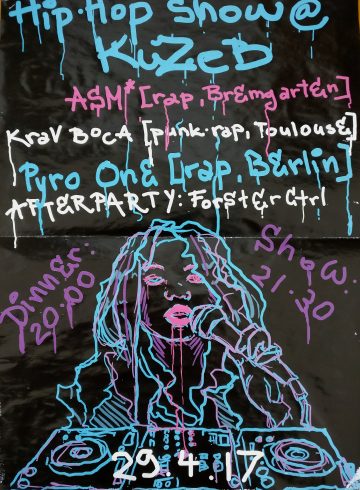 Hip·Hop Show @
KuZeB
ASM* [rap, Bremgarten]
Krav Boca [punk·rap, Toulouse]
Pyro One [rap, Berlin]
AFTERPARTY: Forster Ctrl
Dinner:
20:00
Show:
21:30
29.4.17